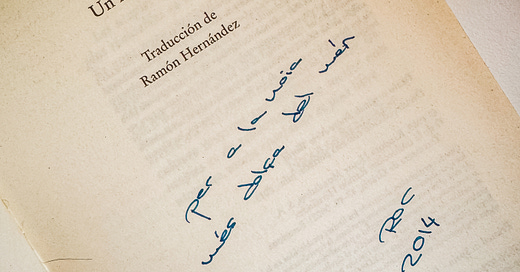 Un
Traducción de
Ramón Hernández
per a la noia
més dolça del món
Roc
2014